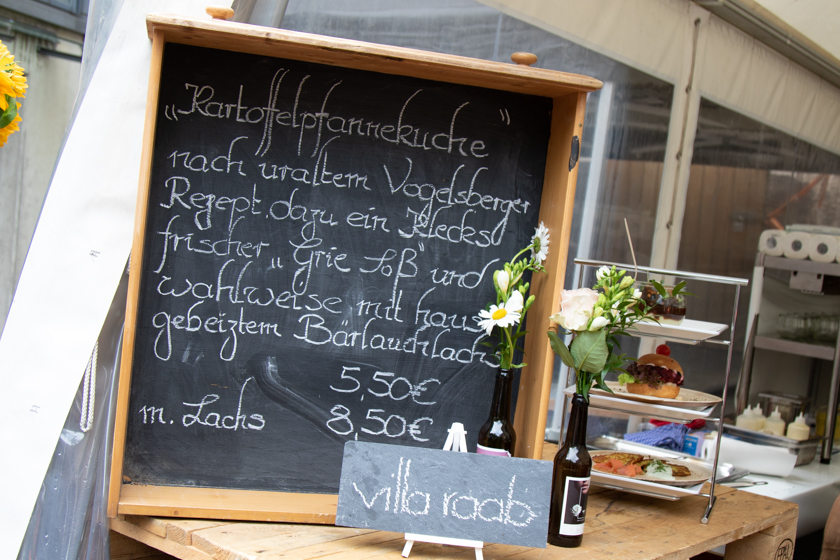 „Kartoffelpfannekuche"
nach uraltem Vogelsberger
Rezept, dazu ein Klecks
frischer „Grie Soß" und
wahlweise mit haus
gebeiztem Bärlauchlachs
5,50€
m. Lachs 8,50€
villa raab